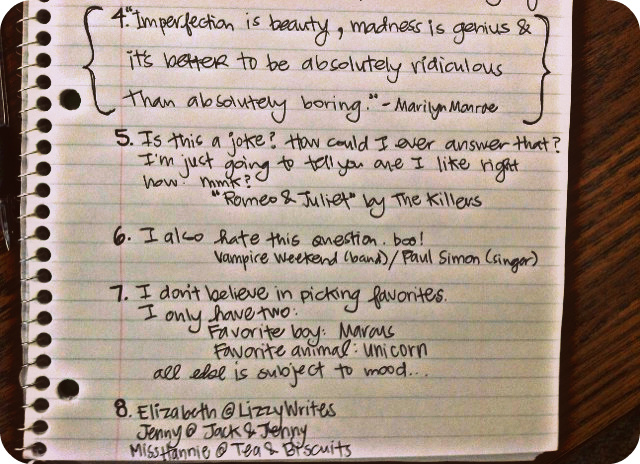 4. "Imperfection is beauty, madness is genius &
it's better to be absolutely ridiculous
than absolutely boring." - Marilyn Monroe
5. Is this a joke? How could I ever answer that?
I'm just going to tell you one I like right
now. mmk?
"Romeo & Juliet" by The Killers
6. I also hate this question. boo!
Vampire Weekend (band) / Paul Simon (singer)
7. I don't believe in picking favorites.
I only have two:
Favorite boy: Marcus
Favorite animal: unicorn
all else is subject to mood...
8. Elizabeth @ LizzyWrites
Jenny @ Jack & Jenny
Miss Hannie @ Tea & Biscuits